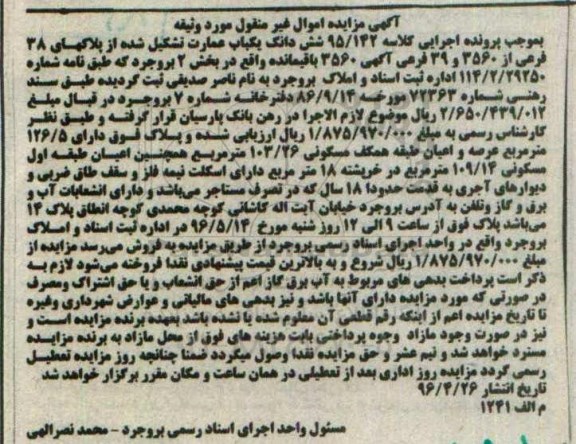 آگهی مزایده اموال غیر منقول مورد وثیقه
بموجب پرونده اجرایی کلاسه ۹۵/۱۴۲ شش دانگ یکباب عمارت تشکیل شده از پلاکهای ۳۸
فرعی از ۳۵۶۰ و ۳۹ فرعی آگهی ۳۵۶۰ باقیمانده واقع در بخش ۲ بروجرد که طبق نامه شماره
۱۱۴/۲/۲۹۲۵۰ اداره ثبت اسناد و املاک بروجرد به نام ناصر صدیقی ثبت گردیده طبق سند
رهنی شماره ۷۲۳۶۳ مورخسه ۸۶/۹/۱۴ دفترخانه شماره ۷ بروجرد در قبال مبلغ
۲/۶۵۰/۴۳۹/۰۱۲ ریال موضوع لازم الاجرا در رهن بانک پارسیان قرار گرفته و طبق نظر
کارشناس رسمی به مبلغ ۱/۸۷۵/۹۷۰/۰۰۰ ریال ارزیابی شده و پلاک فوق دارای ۱۲۶/۵
مترمربع عرصه و اعیان طبقه همکف مسکونی ۱۰۳/۲۶ مترمربع همچنین اعیان طبقه اول
مسکونی ۱۰۹/۱۴ مترمربع در خرپشته ۱۸ متر مربع دارای اسکلت نیمه فلز و سقف طاق ضربی و
دیوارهای آجری به قدمت حدودا ۱۸ سال که در تصرف مستاجر می‌باشد و دارای انشعابات آب و
برق و گاز وتلفن به آدرس بروجرد خیابان آیت اله کاشانی کوچه محمدی کوچه انطاق پلاک ۱۴
می‌باشد پلاک فوق از ساعت ۹ الی ۱۲ روز شنبه مورخ ۹۶/۵/۱۴ در اداره ثبت اسناد و املاک
بروجرد واقع در واحد اجرای اسناد رسمی بروجرد از طریق مزایده به فروش می‌رسد مزایده از
مبلغ ۱/۸۷۵/۹۷۰/۰۰۰ ریال شروع و به بالاترین قیمت پیشنهادی نقدا فروخته می‌شود لازم به
ذکر است پرداخت بدهی های مربوط به آب برق گاز اعم از حق انشعاب و یا حق اشتراک ومصرف
در صورتی که مورد مزایده دارای آنها باشد و نیز بدهی های مالیاتی و عوارض شهرداری وغیره
تا تاریخ مزایده اعم از اینکه رقم قطعی آن معلوم شده یا نشده باشد بعهده برنده مزایده است و
نیز در صورت وجود مازاد وجوه پرداختی بابت هزینه های فوق از محل مازاد به برنده مزایده
مسترد خواهد شد و نیم عشر و حق مزایده نقدا وصول میگردد ضمنا چنانچه روز مزایده تعطیل
رسمی گردد مزایده روز اداری بعد از تعطیلی در همان ساعت و مکان مقرر برگزار خواهد شد
تاریخ انتشار ۹۶/۴/۲۶
م الف ۱۲۴۱
مسئول واحد اجرای اسناد رسمی بروجرد - محمد نصرالهی